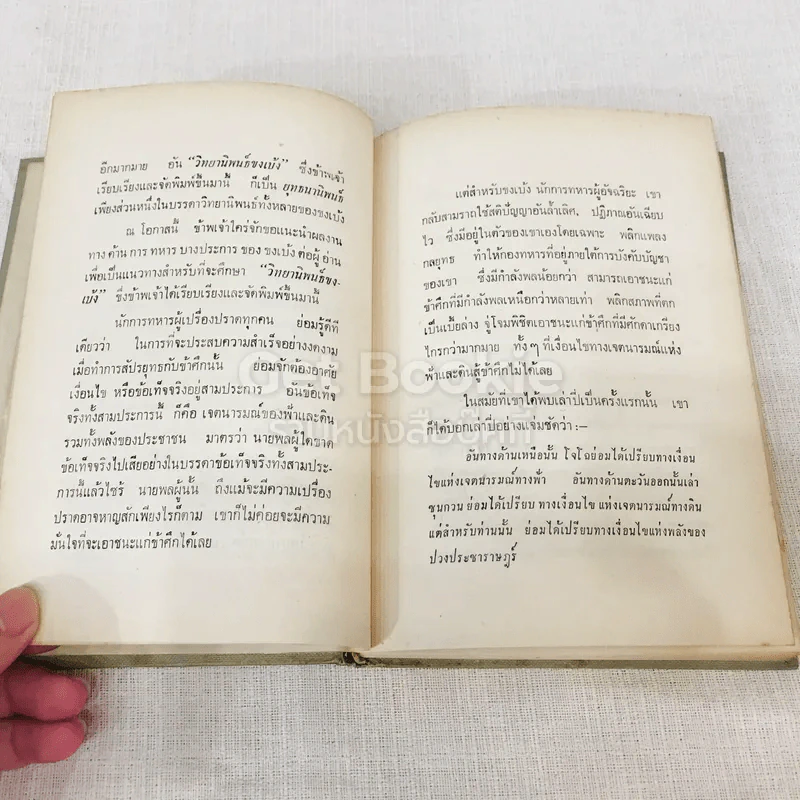 อีกมากมาย อัน “วิทยานิพนธ์ขงเบ้ง” ซึ่งข้าพเจ้า
เรียบเรียงและจัดพิมพ์ขึ้นมานี้ ก็เป็น ยุทธนานิพนธ์
เพียงส่วนหนึ่งในบรรดาวิทยานิพนธ์ทั้งหลายของขงเบ้ง
ณ โอกาสนี้ ข้าพเจ้าใคร่จักขอแนะนำผลงาน
ทาง ด้าน การ ทหาร บางประการ ของ ขงเบ้ง ต่อผู้ อ่าน
เพื่อเป็นแนวทางสำหรับที่จะศึกษา “วิทยานิพนธ์ขง-
เบ้ง” ซึ่งข้าพเจ้าได้เรียบเรียงและจัดพิมพ์ขึ้นมานี้
นักการทหารผู้เปรื่องปราดทุกคน ย่อมรู้ดีที
เดียวว่า ในการที่จะประสบความสำเร็จอย่างงดงาม
เมื่อทำการสัปรยุทธกับข้าศึกนั้น ย่อมจักต้องอาศัย
เงื่อนไข หรือข้อเท็จจริงอยู่สามประการ อันข้อเท็จ
จริงทั้งสามประการนี้ ก็คือ เจตนารมณ์ของฟ้าและดิน
รวมทั้งพลังของประชาชน มาตรว่า นายพลผู้ใดขาด
ข้อเท็จจริงไปเสียอย่างในบรรดาข้อเท็จจริงทั้งสามประ-
การนี้แล้วไซร้ นายพลผู้นั้น ถึงแม้จะมีความเปรื่อง
ปราดอาจหาญสักเพียงไรก็ตาม เขาก็ไม่ค่อยจะมีความ
มั่นใจที่จะเอาชนะแก่ข้าศึกได้เลย
แต่สำหรับขงเบ้ง นักการทหารผู้อัจฉริยะ เขา
กลับสามารถใช้สติปัญญาอันล้ำเลิศ, ปฏิภาณอันเฉียบ
ไว ซึ่งมีอยู่ในตัวของเขาเองโดยเฉพาะ พลิกแพลง
กลยุทธ ทำให้กองทหารที่อยู่ภายใต้การบังคับบัญชา
ของเขา ซึ่งมีกำลังพลน้อยกว่า สามารถเอาชนะแก่
ข้าศึกที่มีกำลังพลเหนือกว่าหลายเท่า พลิกสภาพที่ตก
เป็นเบี้ยล่าง จู่โจมพิชิตเอาชนะแก่ข้าศึกที่มีศักดาเกรียง
ไกรกว่ามากมาย ทั้งๆ ที่เงื่อนไขทางเจตนารมณ์แห่ง
ฟ้าและดินสู้ข้าศึกไม่ได้เลย
ในสมัยที่เขาได้พบเล่าปี่เป็นครั้งแรกนั้น เขา
ก็ได้บอกเล่าปี่อย่างแจ่มชัดว่า :—
อันทางด้านเหนือนั้น โจโฉย่อมได้เปรียบทางเงื่อน
ไขแห่งเจตนารมณ์ทางฟ้า อันทางด้านตะวันออกนั้นเล่า
ซุนกวน ย่อมได้เปรียบ ทางเงื่อนไข แห่งเจตนารมณ์ทางดิน
แต่สำหรับท่านนั้น ย่อมได้เปรียบทางเงื่อนไขแห่งพลังของ
ปวงประชาราษฎร์
Get Bookie
ร้านหนังสือบุ๊คกี้